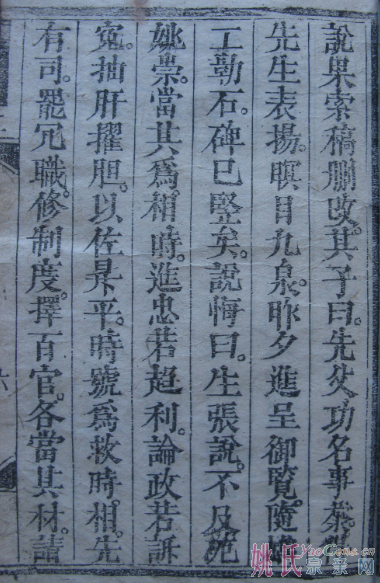 說果索稿刪改。其子曰。先父功名事業。
先生表揚。瞑目九泉。昨夕進呈御覽。隨
工勒石。碑已堅矣。說悔曰。生張說。不及死
姚崇。當其爲相時。進忠若趨利。論政若訴
冤。抽肝擢胆。以佐昇平。時號爲救時相。先
有司。罷冗職。修制度。擇百官。各當其材。請
姚氏宗亲网